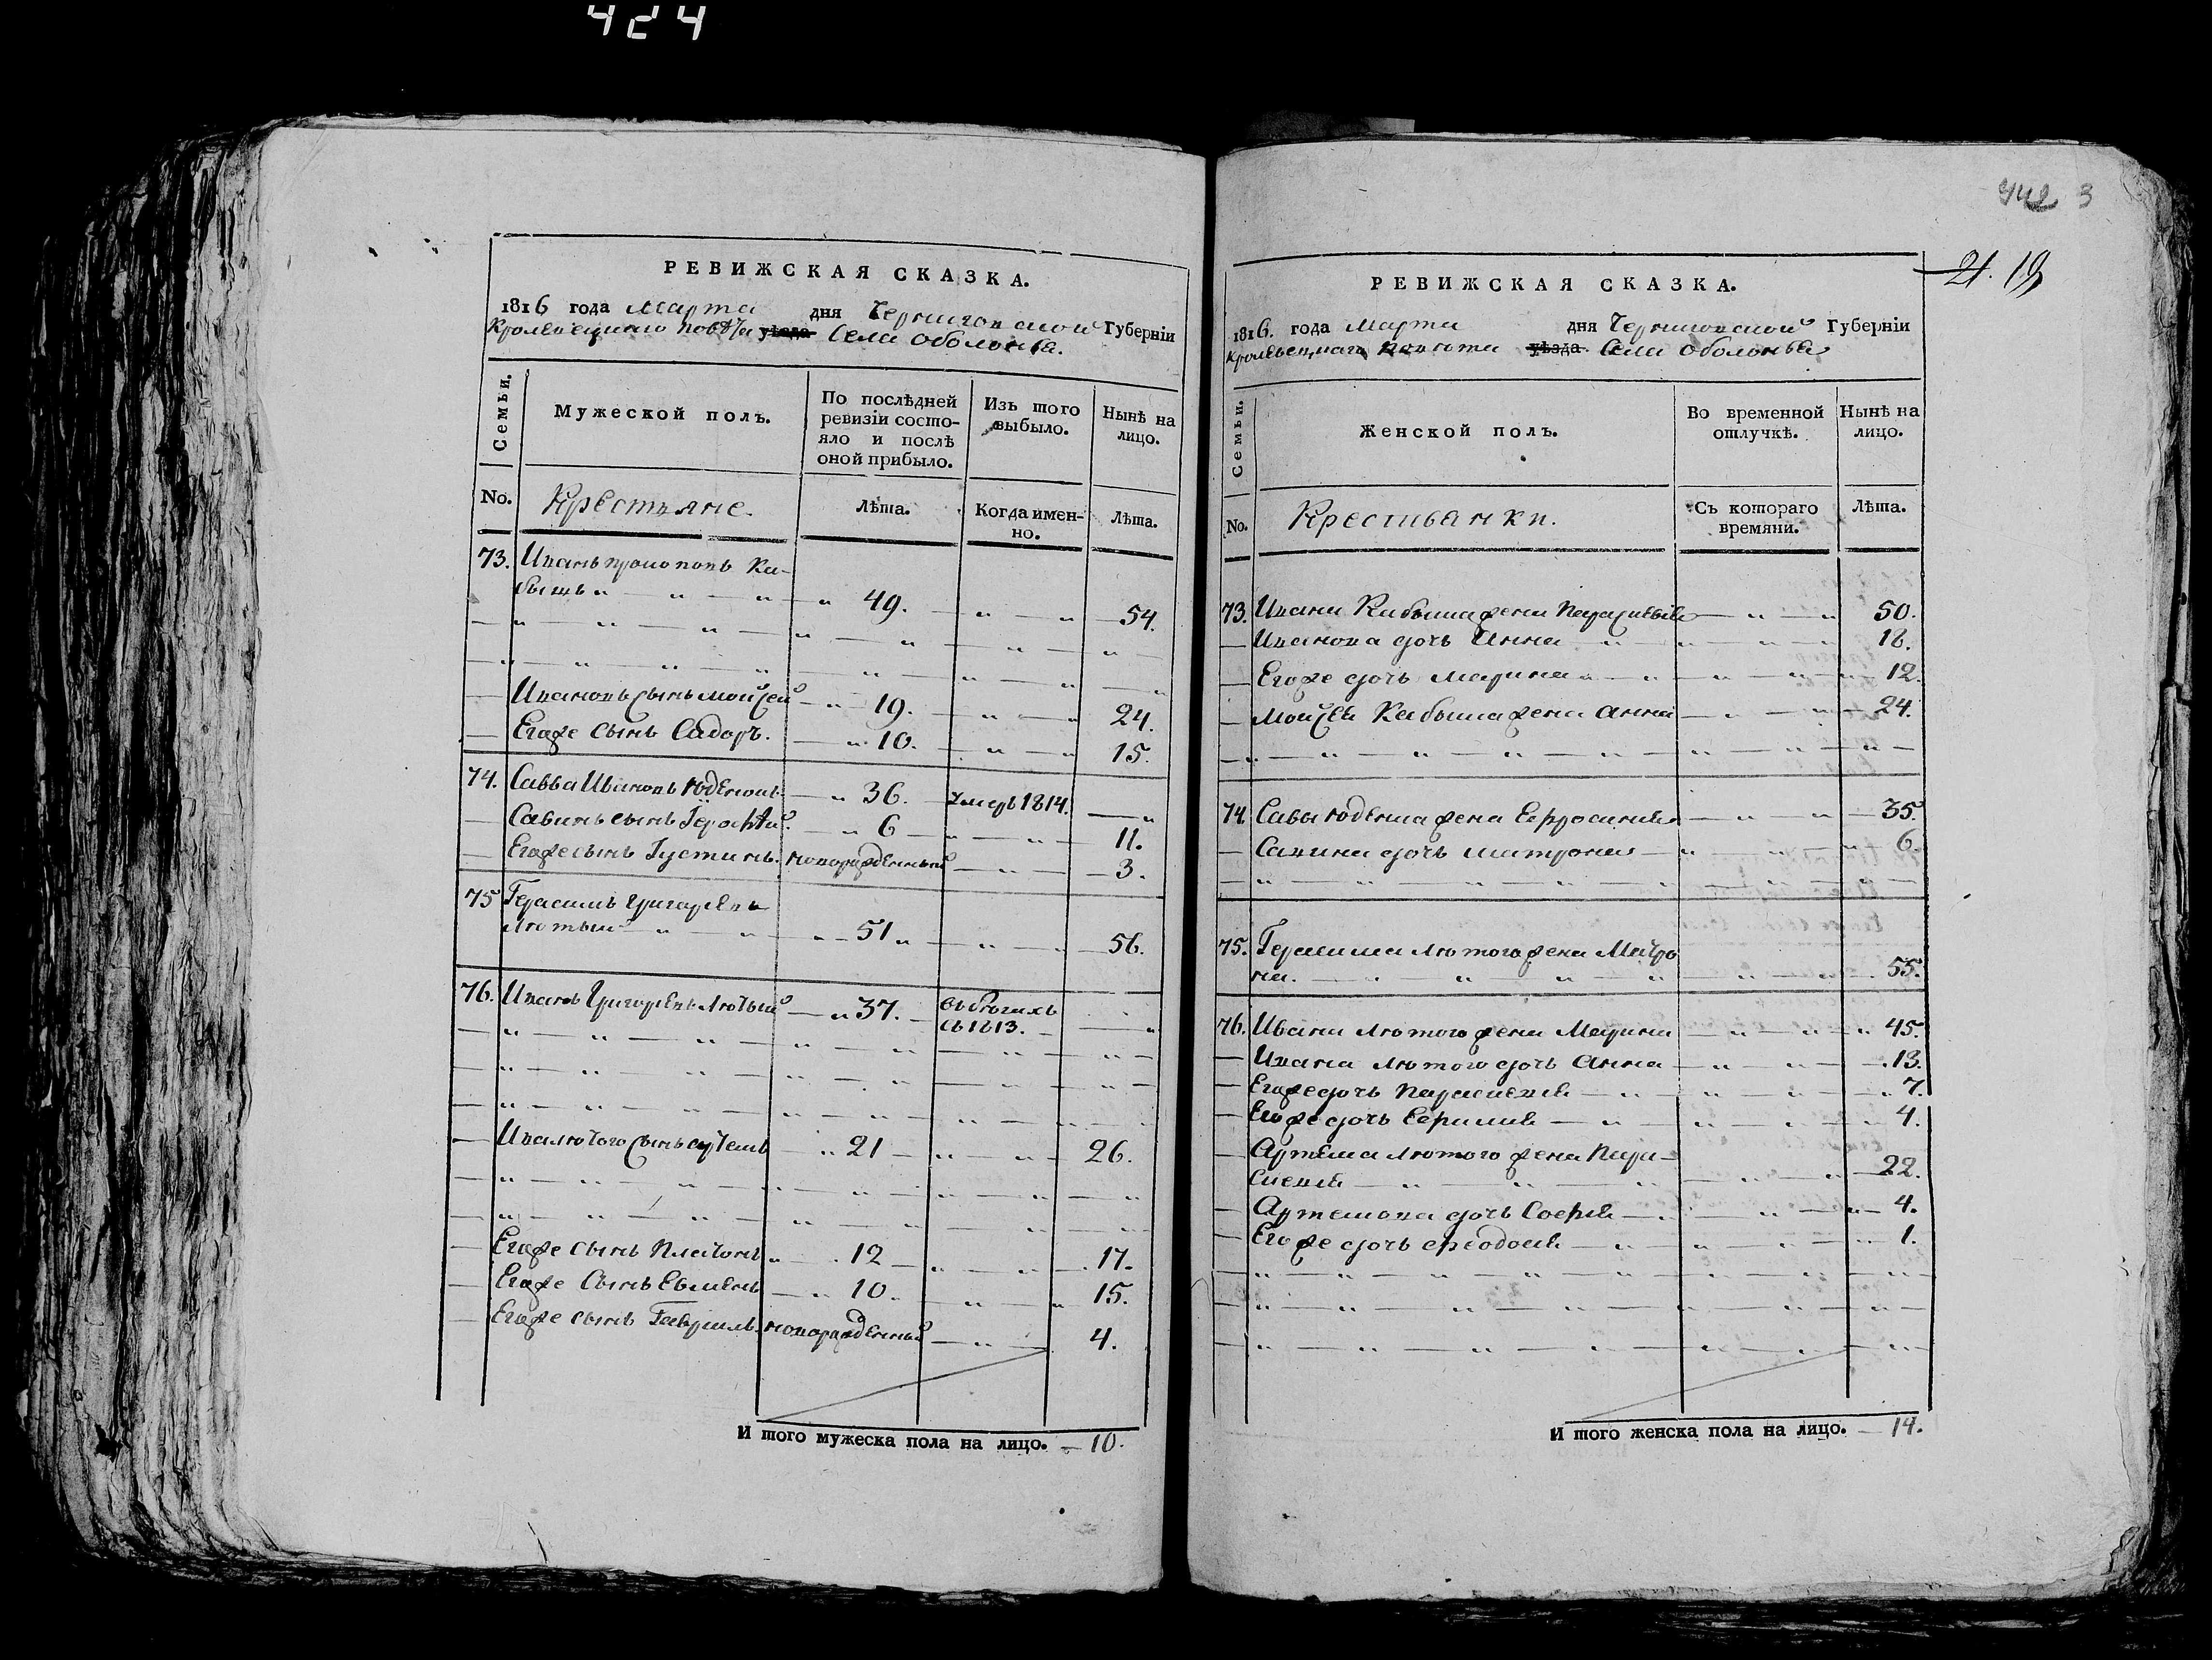 424
РЕВИЖСКАЯ СКАЗКА.
1816 года Марта дня Черниговской Губерніи
Кролевецкаго повѣта уѣзда Села Оболонья.
Семьи.
Мужеской полъ.
По послѣдней ревизіи состояло и послѣ оной прибыло.
Изъ того выбыло.
Нынѣ на лицо.
No.
Крестьяне.
Лѣта.
Когда именно.
Лѣта.
73. Иванъ Прокоповъ Ка-
бышъ 49. 54.
Ивановъ сынъ Мойсей 19. 24.
Егоже сынъ Сидоръ. 10. 15.
74. Савва Ивановъ 36. умеръ 1814.
Савинъ сынъ 6 11.
Егоже сынъ Густинъ. новорожденный 3.
75 Герасимъ Григорьевъ
Лютый 51 56.
76. Иванъ Григорьевъ Лютый 37. въ бѣгахъ
съ 1813.
Ива Лютого сынъ Артемъ 21 26.
Егоже сынъ Платонъ 12 17.
Егоже сынъ Евменъ 10. 15.
Егоже сынъ Гаврилъ. новорожденный 4.
И того мужеска пола на лицо. 10.
442 3
21. 19
РЕВИЖСКАЯ СКАЗКА.
1816. года Марта дня Черниговской Губерніи
Кролевецкаго повѣта уѣзда Села Оболонья
Семьи.
Женской полъ.
Во временной отлучкѣ.
Нынѣ на лицо.
No.
Крестьянки.
Съ котораго времяни.
Лѣта.
73. Ивана Кабыша жена Параскевія 50.
Иванова дочь Анна 18.
Егоже дочь Марина 12.
Мойсея Кабыша жена Анна 24.
74 Савы жена Ефросинія 35.
Савина дочь Матрона 6.
75. Герасима Лютого жена Матро
на. 55.
76. Ивана Лютого жена Марина 45.
Ивана Лютого дочь Анна 13.
Егоже дочь Параскевія 7.
Егоже дочь 4.
Артема Лютого жена Пара-
скевія 22.
Артемова дочь Софія 4.
Егоже дочь Феодосія 1.
И того женска пола на лицо. 14.